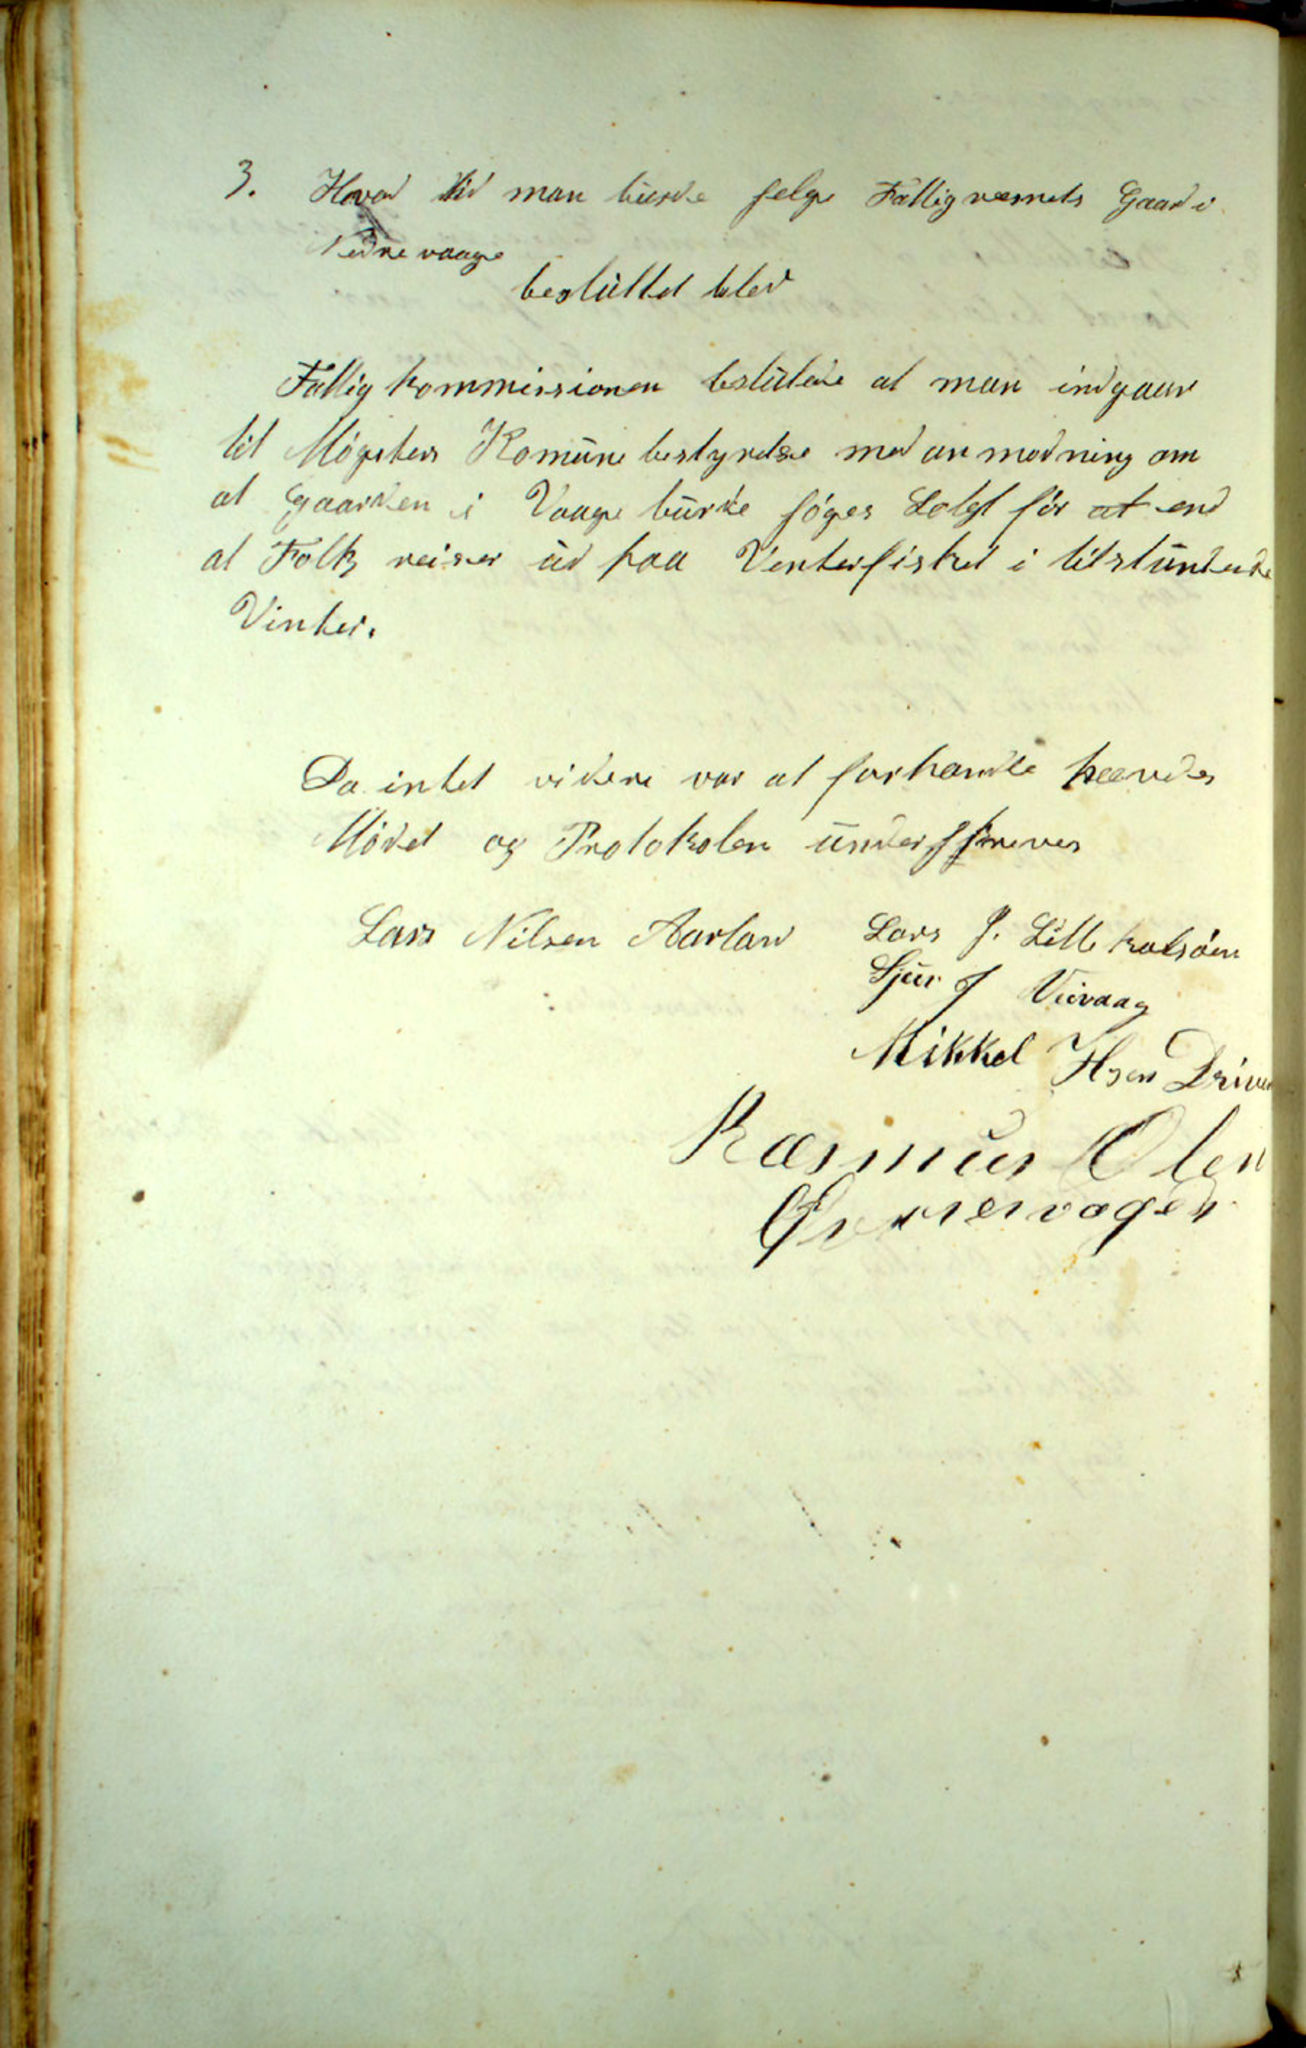 3. Hvad tid man burde selge Fattigvæsnets Gaard i
Nedre vaage
besluttet blev
Fattigkommissionen beslutede at man indgaar
til Møgsters Komune bestyrelse med anmodning om
at Gaarden i Vaage burde søges Solgt før at end
at Folk reiser ud paa Venterfisket i tilstundende
Vinter.
Da intet videre var at forhandle hævedes
Mødet og Protokolen underskreves
Lars Nilsen Aarland Lars J. Lille kalsøen
Sjur J Viivaag
Mikkel Hsen Drive
Rasmus Olsen
Øvrevaagen